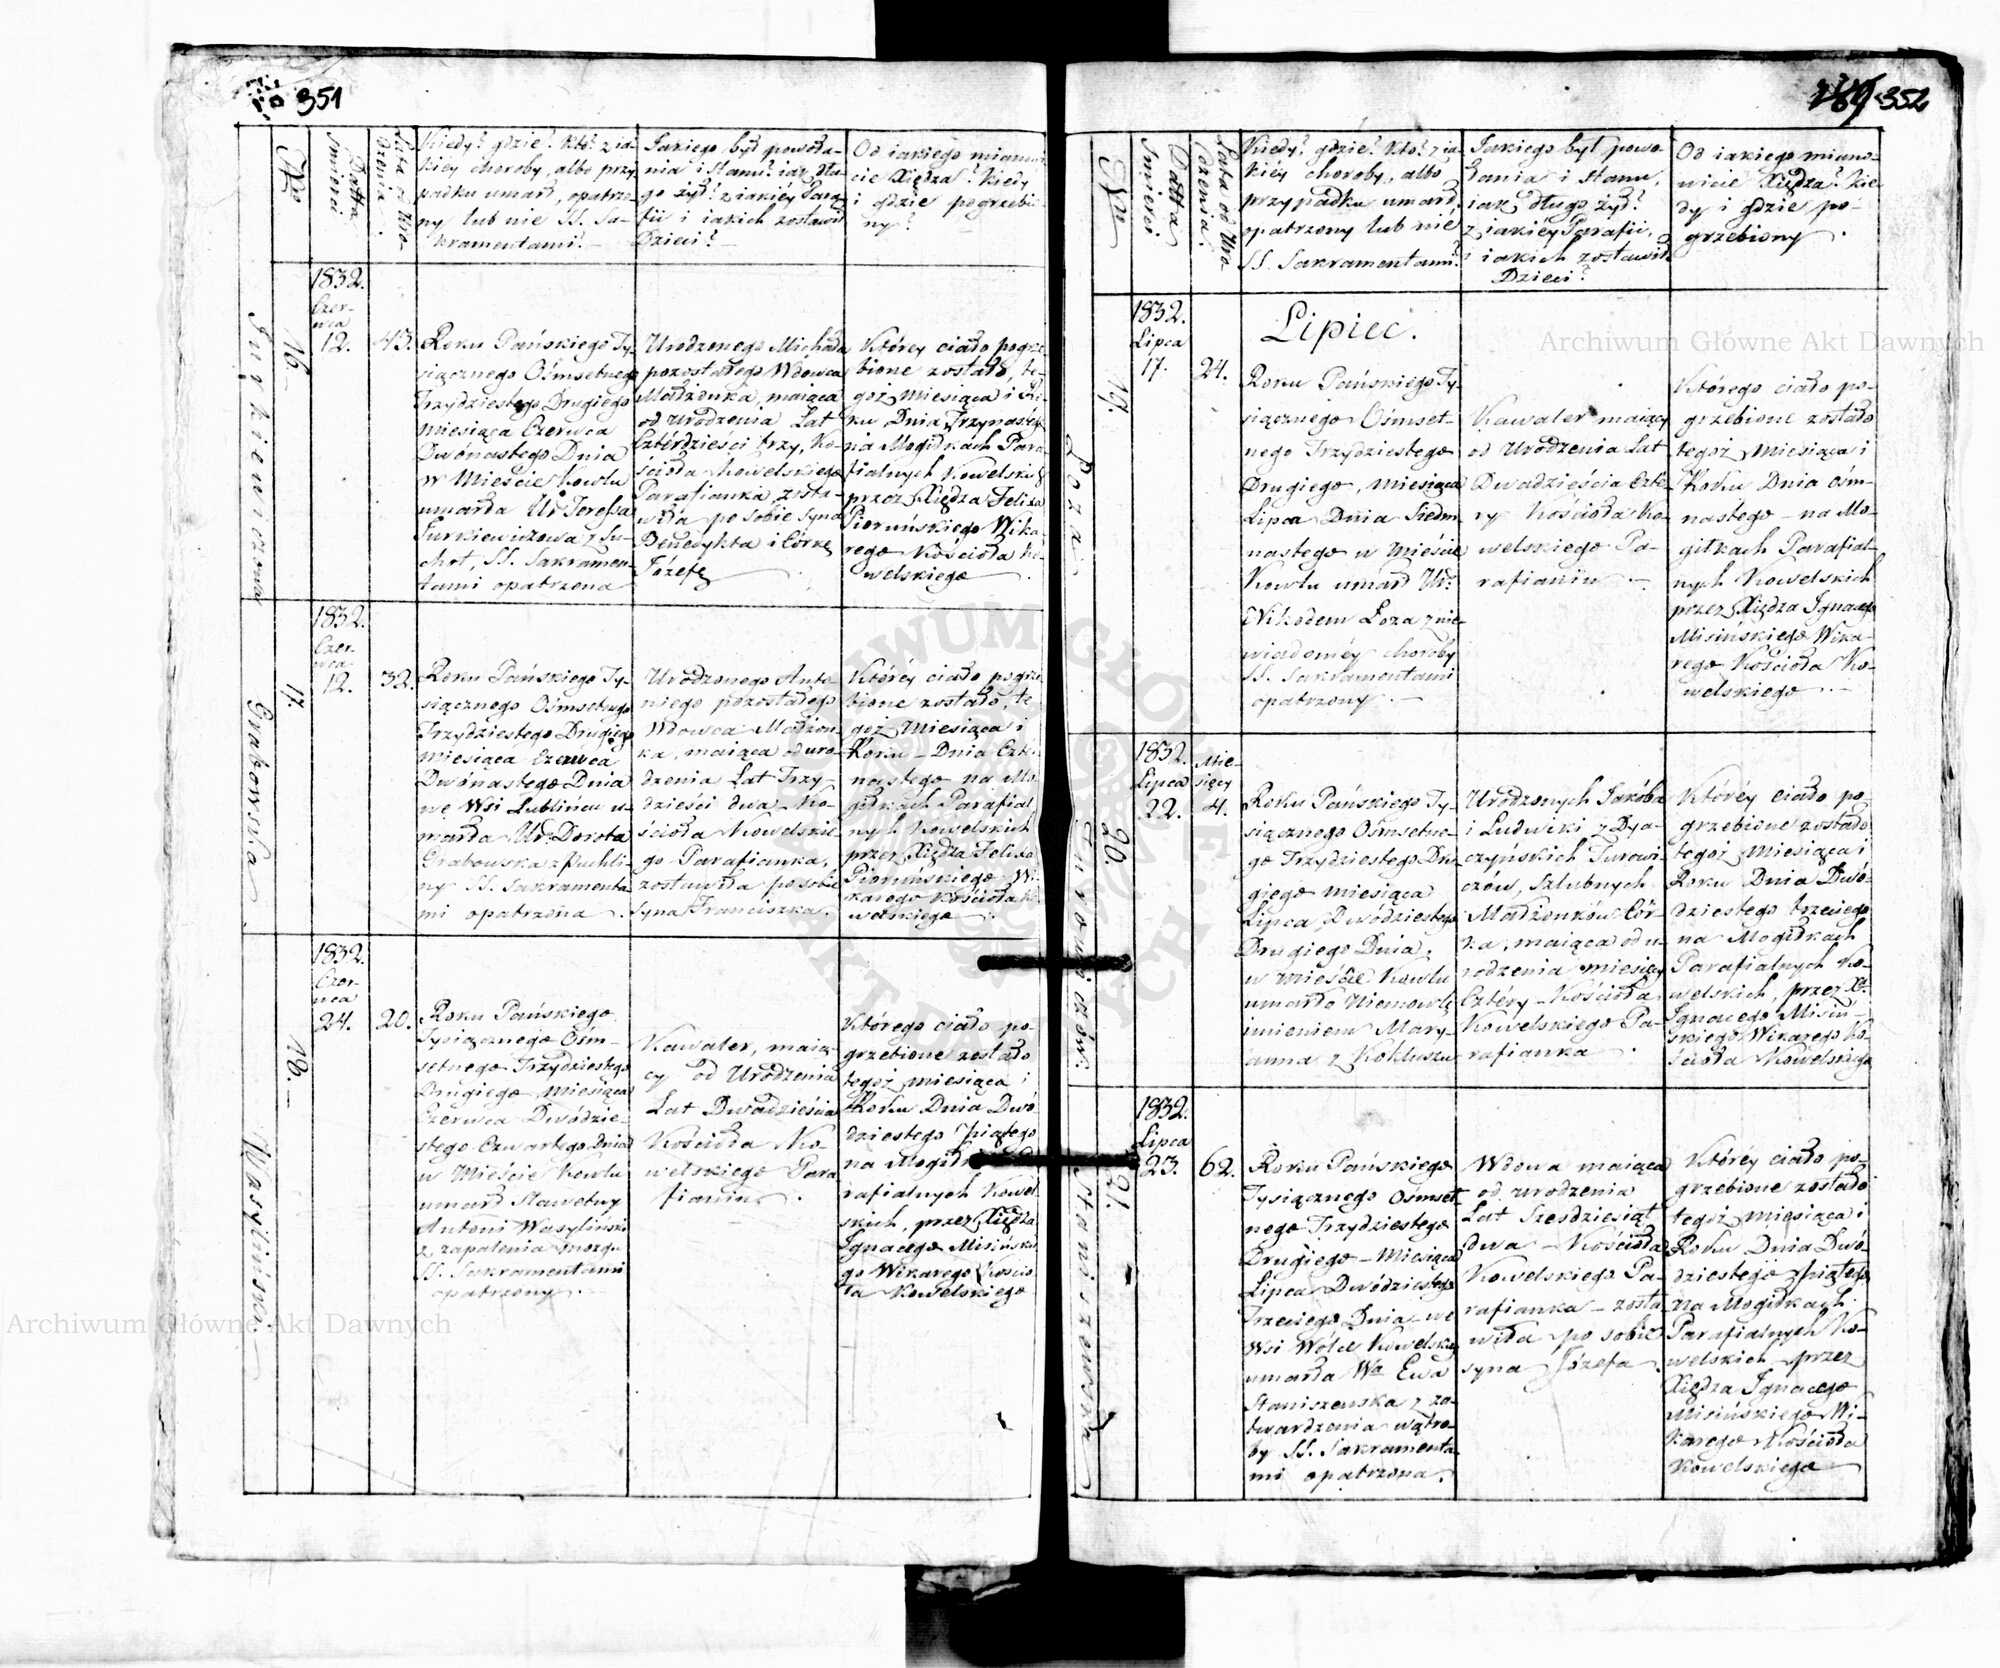 351
No
Datta Śmierci
Lata od Uro-
dzenia.
Kiedy? gdzie? Kto? z ia-
kiey choroby, albo przy
padku umarł, opatrzo-
ny lub nie SS. Sa-
kramentami?
Jakiego był powoła-
nia i Stanu? iak dłu-
go żył? z iakiéy Para
fii i iakich zostawił
Dzieci?
Od iakiego mianowi
cie Xiędza? Kiedy
i gdzie pogrzebio
ny?
Jurkiewiczowa
16.
1832.
Czer-
wca
12.
43.
Roku Pańskiego Ty-
siącznego Ośmsetnego
Trzydziestego Drugiego
miesiąca Czerwca
Dwónastego Dnia
w Mieście Kowlu
umarła Ur. Teressa
Jurkiewiczowa z Su-
chot, SS. Sakramen-
tami opatrzona
Urodzonego Michała
pozostałego Wdowca
Małżonka, maiąca
od Urodzenia Lat
Czterdzieści trzy, Ko-
ścioła Kowelskiego
Parafianka zosta-
wiła po sobie Syna
Benedykta i Córkę
Józefę
Którey ciało pogrze
bione zostało, te-
goż Miesiąca i Ro-
ku, Dnia Trzynastego
na Mogiłkach Para
fialnych Kowelskich
przez Xiędza Felixa
Pioruńskiego Wika-
rego Kościoła Ko-
welskiego
Grabowska
17.
1832.
Czer-
wca
12.
32.
Roku Pańskiego Ty-
siącznego Ośmsetnego
Trzydziestego Drugiego
miesiąca Czerwca
Dwónastego Dnia
we Wsi Lublińcu u-
marła Ur. Dorota
Grabowska z Puchli-
ny SS. Sakramenta
mi opatrzona.
Urodzonego Anto
niego pozostałego
Wdowca Małżon-
ka, maiąca od uro-
dzenia Lat Trzy-
dzieści dwa Ko-
ścioła Kowelskie
go Parafianka,
zostawiła po sobie
Syna Franciszka.
Któréy ciało pogrze
bione zostało, te
goż Miesiąca i
Roku - Dnia Czter
nastego na Mo-
giłkach Parafial
nych Kowelskich
przez Xiędza Felixa
Pioruńskiego Wi-
karego Kościoła Ko
welskiego
Wasylińsk
18.
1832.
Czer-
wca
24.
20.
Roku Pańskiego
Tysiącznego Ośm-
setnego Trzydziestego
Drugiego, Miesiąca
Czerwca Dwódzie-
stego Czwartego Dnia
w Mieście Kowlu
umarł Sławetny
Antoni Wasyliński
z zapalenia mozgu
SS. Sakramentami
opatrzony.
Kawaler, maią-
cy od Urodzenia
Lat Dwadzieścia
Kościoła Ko
welskiego Para
fianin.
Którego ciało po-
grzebione zostało
tegoż miesiąca i
Roku Dnia Dwó
dziestego Piątego
na Mogił
rafialnych Kowel
skich, przez Xiędza
Ignacego Misińskie
go Wikarego Kościo
ła Kowelskiego
289 352
Nr
Datta Śmierci
Lata od Uro
dzenia.
Kiedy? gdzie? Kto? z ia-
kiéy choroby, albo
przypadku umarł,
opatrzony lub nié
SS. Sakramentami?
Jakiego był powo-
łania i Stanu,
iak długo żył?
z iakiéy Parafii,
i iakich zostawił
Dzieci?
Od iakiego miano-
wicie Xiędza? Kie-
dy i gdzie po-
grzebiony.
Łoza
19.
1832.
Lipca
17.
24.
Lipiec.
Roku Pańskiego Ty-
siącznego Ośmset-
nego Trzydziestego
Drugiego, miesiąca
Lipca Dnia Siedm
nastego w Mieście
Kowlu umarł Ur.
Nikodem Łoza z nie-
wiadoméy choroby
SS. Sakramentami
opatrzony.
Kawaler maiący
od Urodzenia Lat
Dwadzieścia Czte-
ry Kościoła Ko-
welskiego Pa-
rafianin
Którego ciało po-
grzebione zostało
tegoż Miesiąca i
Roku Dnia Ośm-
nastego - na Mo-
giłkach Parafial-
nych Kowelskich
przez Xiędza Ignacego
Misińskiego Wika-
rego Kościoła Ko-
welskiego
Turowiczów.
20.
1832.
Lipca
22.
Mie-
sięcy
4.
Roku Pańskiego Ty-
siącznego Ośmsetne-
go Trzydziestego Dru-
giego miesiąca
Lipca, Dwódziestego
Drugiego Dnia,
w Mieście Kowlu
umarło Niemowlę
imieniem Mary-
anna z Kokluszu
Urodzonych Jakóba
i Ludwiki z Dya-
czyńskich Turowi-
czów, Szlubnych
Małżonków Cór-
ka, maiąca od u-
rodzenia miesięcy
Cztéry - Kościoła
Kowelskiego Pa-
rafianka.
Któréy ciało po-
grzebione zostało
tegoż Miesiąca i
Roku Dnia Dwó-
dziestego trzeciego
na Mogiłkach
Parafialnych Ko-
welskich, przez X.
Ignacego Misiń-
skiego Wikarego Ko-
ścioła Kowelskiego
Staniszewska
21.
1832.
Lipca
23.
62.
Roku Pańskiego
Tysiącznego Ośmset
nego Trzydziestego
Drugiego - Miesiąca
Lipca Dwódziestego
Trzeciego Dnia - we
Wsi Wólce Kowelskiej
umarła Wa Ewa
Staniszewska z za-
twardzenia wątro-
by SS. Sakramenta
mi opatrzona.
Wdowa maiąca
od urodzenia
Lat Sześdziesiąt
dwa - Kościoła
Kowelskiego Pa-
rafianka - zosta
wiła po sobie
syna Józefa.
Któréy ciało po-
grzebione zostało
tegoż Miesiąca i
Roku Dnia Dwó-
dziestego Piątego
na Mogiłkach
Parafialnych Ko-
welskich przez
Xiędza Ignacego
Misińskiego Wi-
karego Kościoła
Kowelskiego
Archiwum Główne Akt Dawnych
Archiwum Główne Akt Dawnych
ARCHIWUM GŁÓWNE AKT DAWNYCH